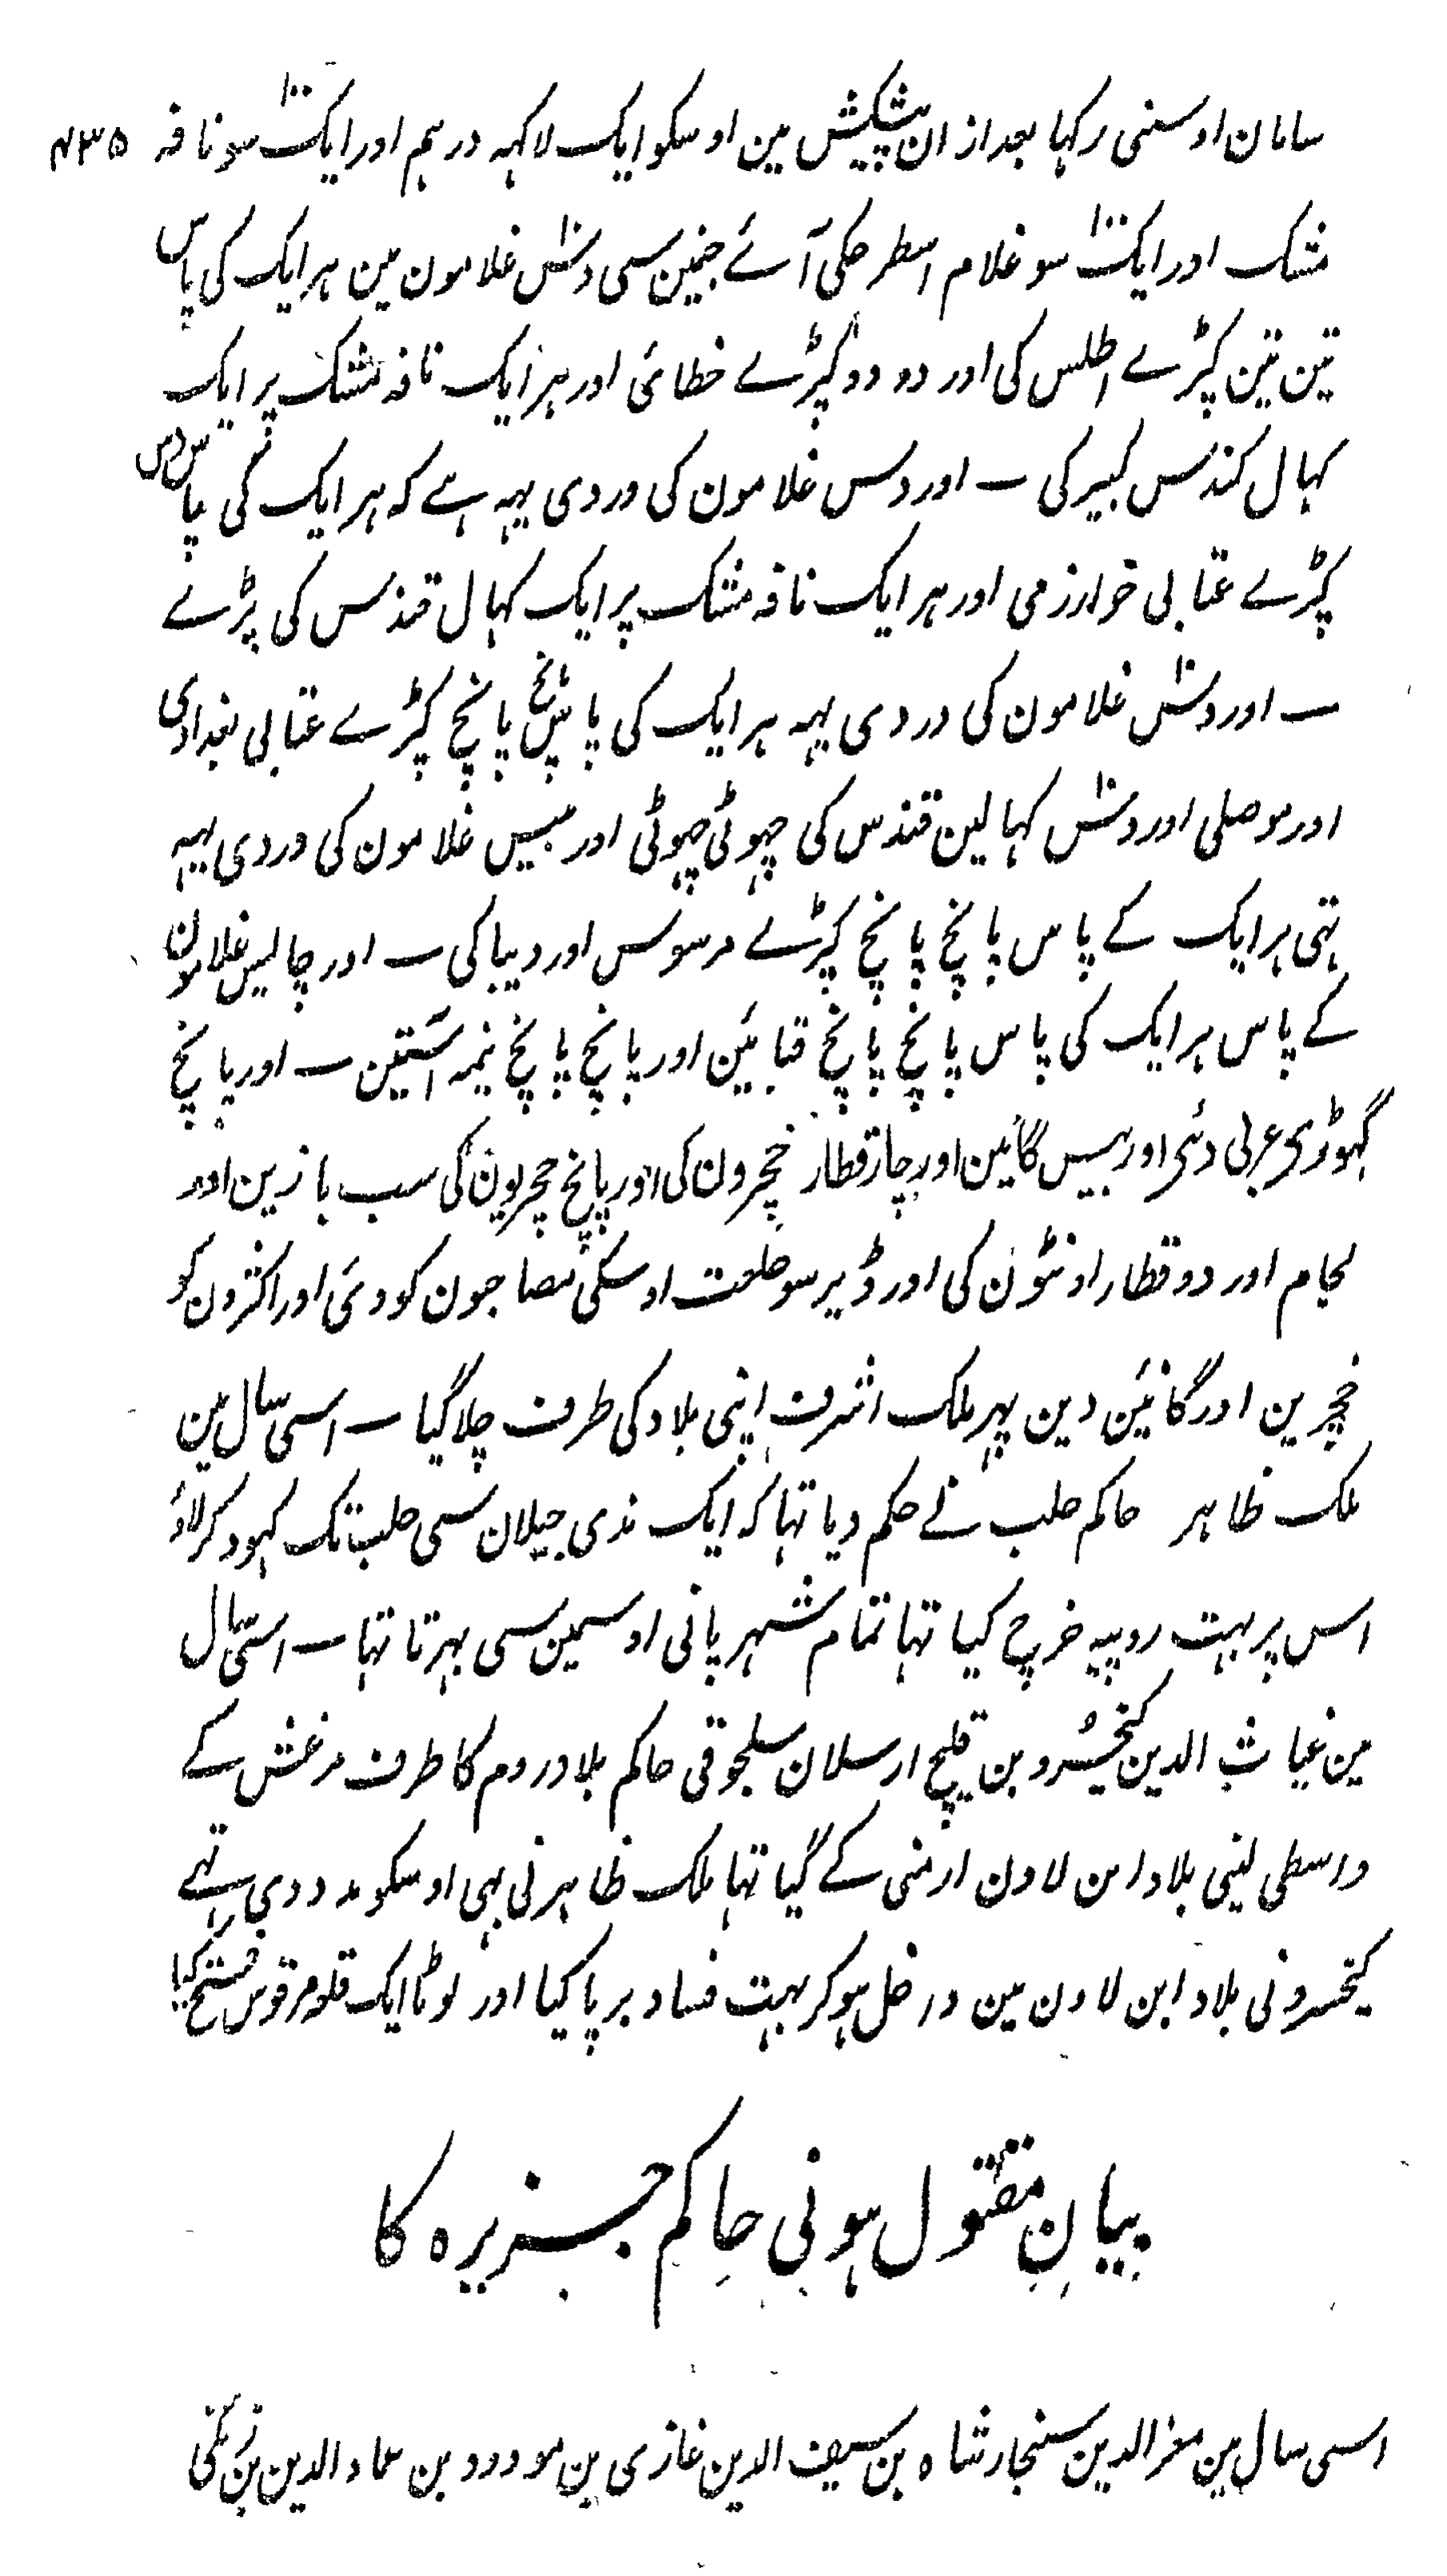 سامان اوسنی رکہا بعد ازان پیشکش مین اوسکو ایک لاکہہ درہم اور ایک سو نافہ ۴۳۵
مشک اور ایک سو غلام اسطرحکی آئے جنمین سی دس غلامون مین ہر ایک کی پاس
تین تین کپڑے اطلس کی اور دو دو کپڑے خطائی اور ہر ایک نافہ مشک پر ایک
کہال کندس کبیر کی ۔ اور دس غلامون کی وردی یہہ ہے کہ ہر ایک کی پاس دس
کپڑے عتابی خوارزمی اور ہر ایک نافہ مشک پر ایک کہال قندس کی پڑے
۔ اور دس غلامون کی وردی یہہ ہر ایک کی پاس پانچ پانچ کپڑے عتابی بغدادی
اور موصلی اور دس کہالین قندس کی چہوٹی چہوٹی اور بیس غلامون کی وردی یہہ
تہی ہر ایک کے پاس پانچ پانچ کپڑے مرسوس اور دیبا کی ۔ اور چالیس غلامون
کے پاس ہر ایک کی پاس پانچ پانچ قبائین اور پانچ پانچ نیمہ آستین ۔ اور پانچ
گہوڑی عربی دئی اور بیس گائین اور چار قطار خچرون کی اور پانچ خچریون کی سب با زین اور
لجام اور دو قطار اونٹون کی اور ڈیرسو خلعت اوسکی مصاحبون کو دئی اور اکثرون کو
خچرین اور گائین دین پہر ملک اشرف اپنی بلاد کی طرف چلا گیا ۔ اسی سال مین
ملک ظاہر حاکم حلب نے حکم دیا تہا کہ ایک ندی جیلان سی حلب تک کہود کر لاؤ
اس پر بہت روپیہ خرچ کیا تہا تمام شہر پانی اوسمین سی بہرتا تہا ۔ اسی سال
مین غیاث الدین کیخسرو بن قلیج ارسلان سلجوقی حاکم بلاد روم کا طرف مرعش کے
واسطی لینی بلاد ابن لاون ارمنی کے گیا تہا ملک ظاہر نی بہی اوسکو مدد دی تہے
کیخسرو نی بلاد ابن لاون مین داخل ہو کر بہت فساد برپا کیا اور لوٹا ایک قلعہ فرقوس فتح کیا
بیان مقتول ہونی حاکم جزیرہ کا
اسی سال مین معزالدین سنجار شاہ بن سیف الدین غازی بن مودود بن عماد الدین بن زنگی